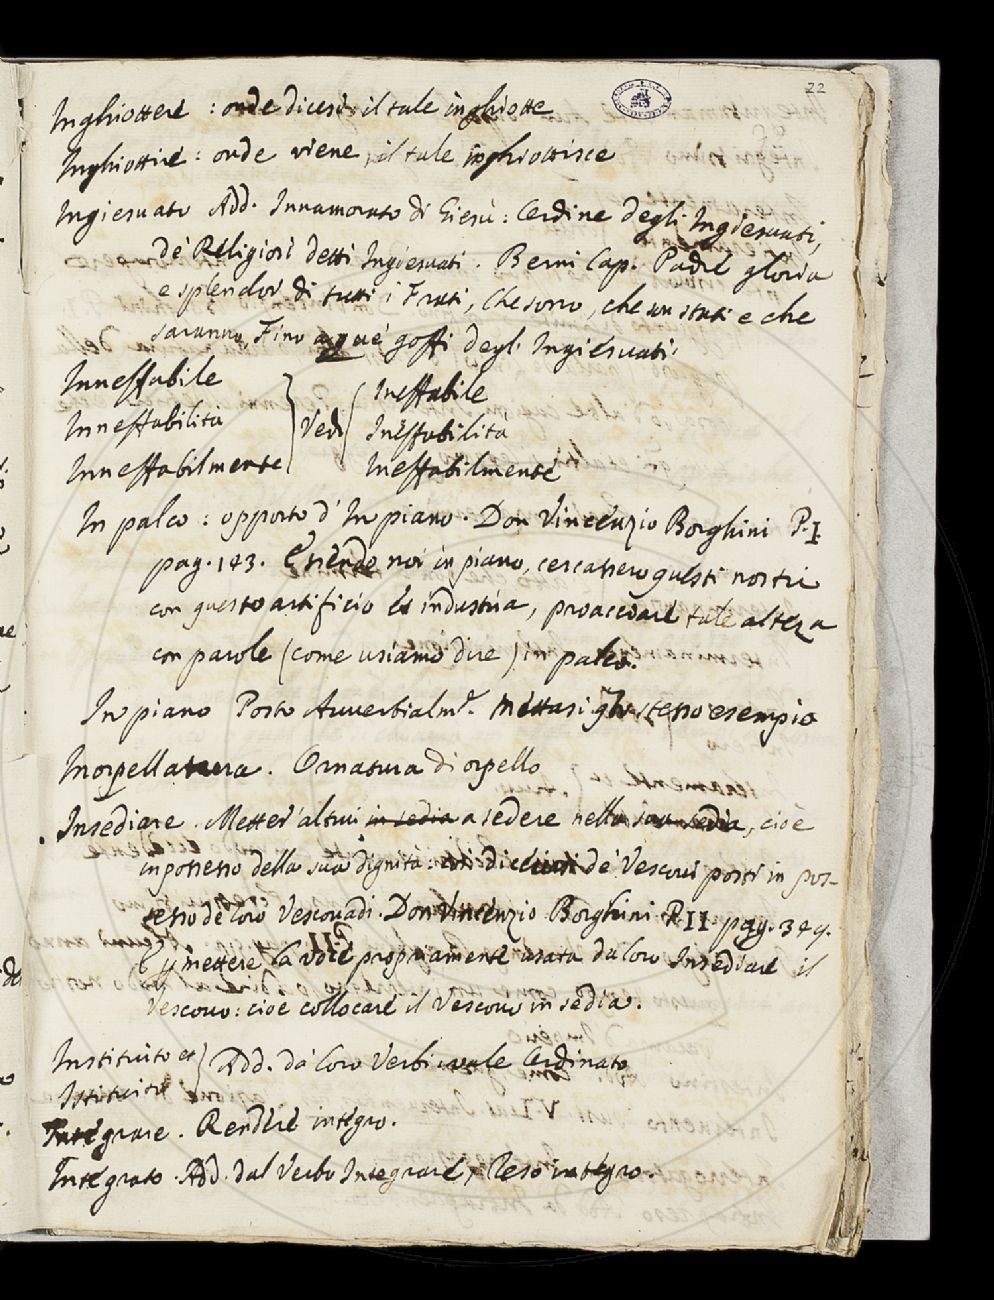 22
Inghiottere : onde dicesi: il tale inghiotte
Inghiottire : onde viene, il tale inghiottisce
Ingiesuato Add. Innamorato di Giesù : Ordine degli Ingiesuati,
de Religiosi detti Ingiesuati. Berni Cap. Padre gloria
e splendor di tutti i Frati, che sono, che son stati e che
saranno, Fino a que' goffi degl' Ingiesuati.
Inneffabile
Inneffabilità
Inneffabilmente
Vedi
Ineffabile
Ineffabilità
Ineffabilmente
In palco : opposto d' In piano. Don Vincenzio Borghini P. I.
pag. 143. Essendo noi in piano, cercassero questi nostri
con questo artificio et industria, procacciare tale alteza
con parole (come usiamo dire) in palco.
In piano Posto Avverbialm.e mettasi stesso esempio
Inorpellatura. Ornatura di orpello
Insediare. Metter' altrui in sedia a sedere nella sua sedia, cioè
in possesso della sua dignità: de' Vescovi posti in pos-
sesso de loro Vescovadi. Don Vincenzio Borghini P. II. pag. 349.
P. II
E mettere la voce propriamente usata da loro Insediare il
Vescovo: cioè collocare il Vescovo in sedia.
Instituito et
Istituito
Add. da loro Verbi: vale Ordinato
Integrare. Rendere integro.
Integrato. Add. dal Verbo Integrare, Reso integro.